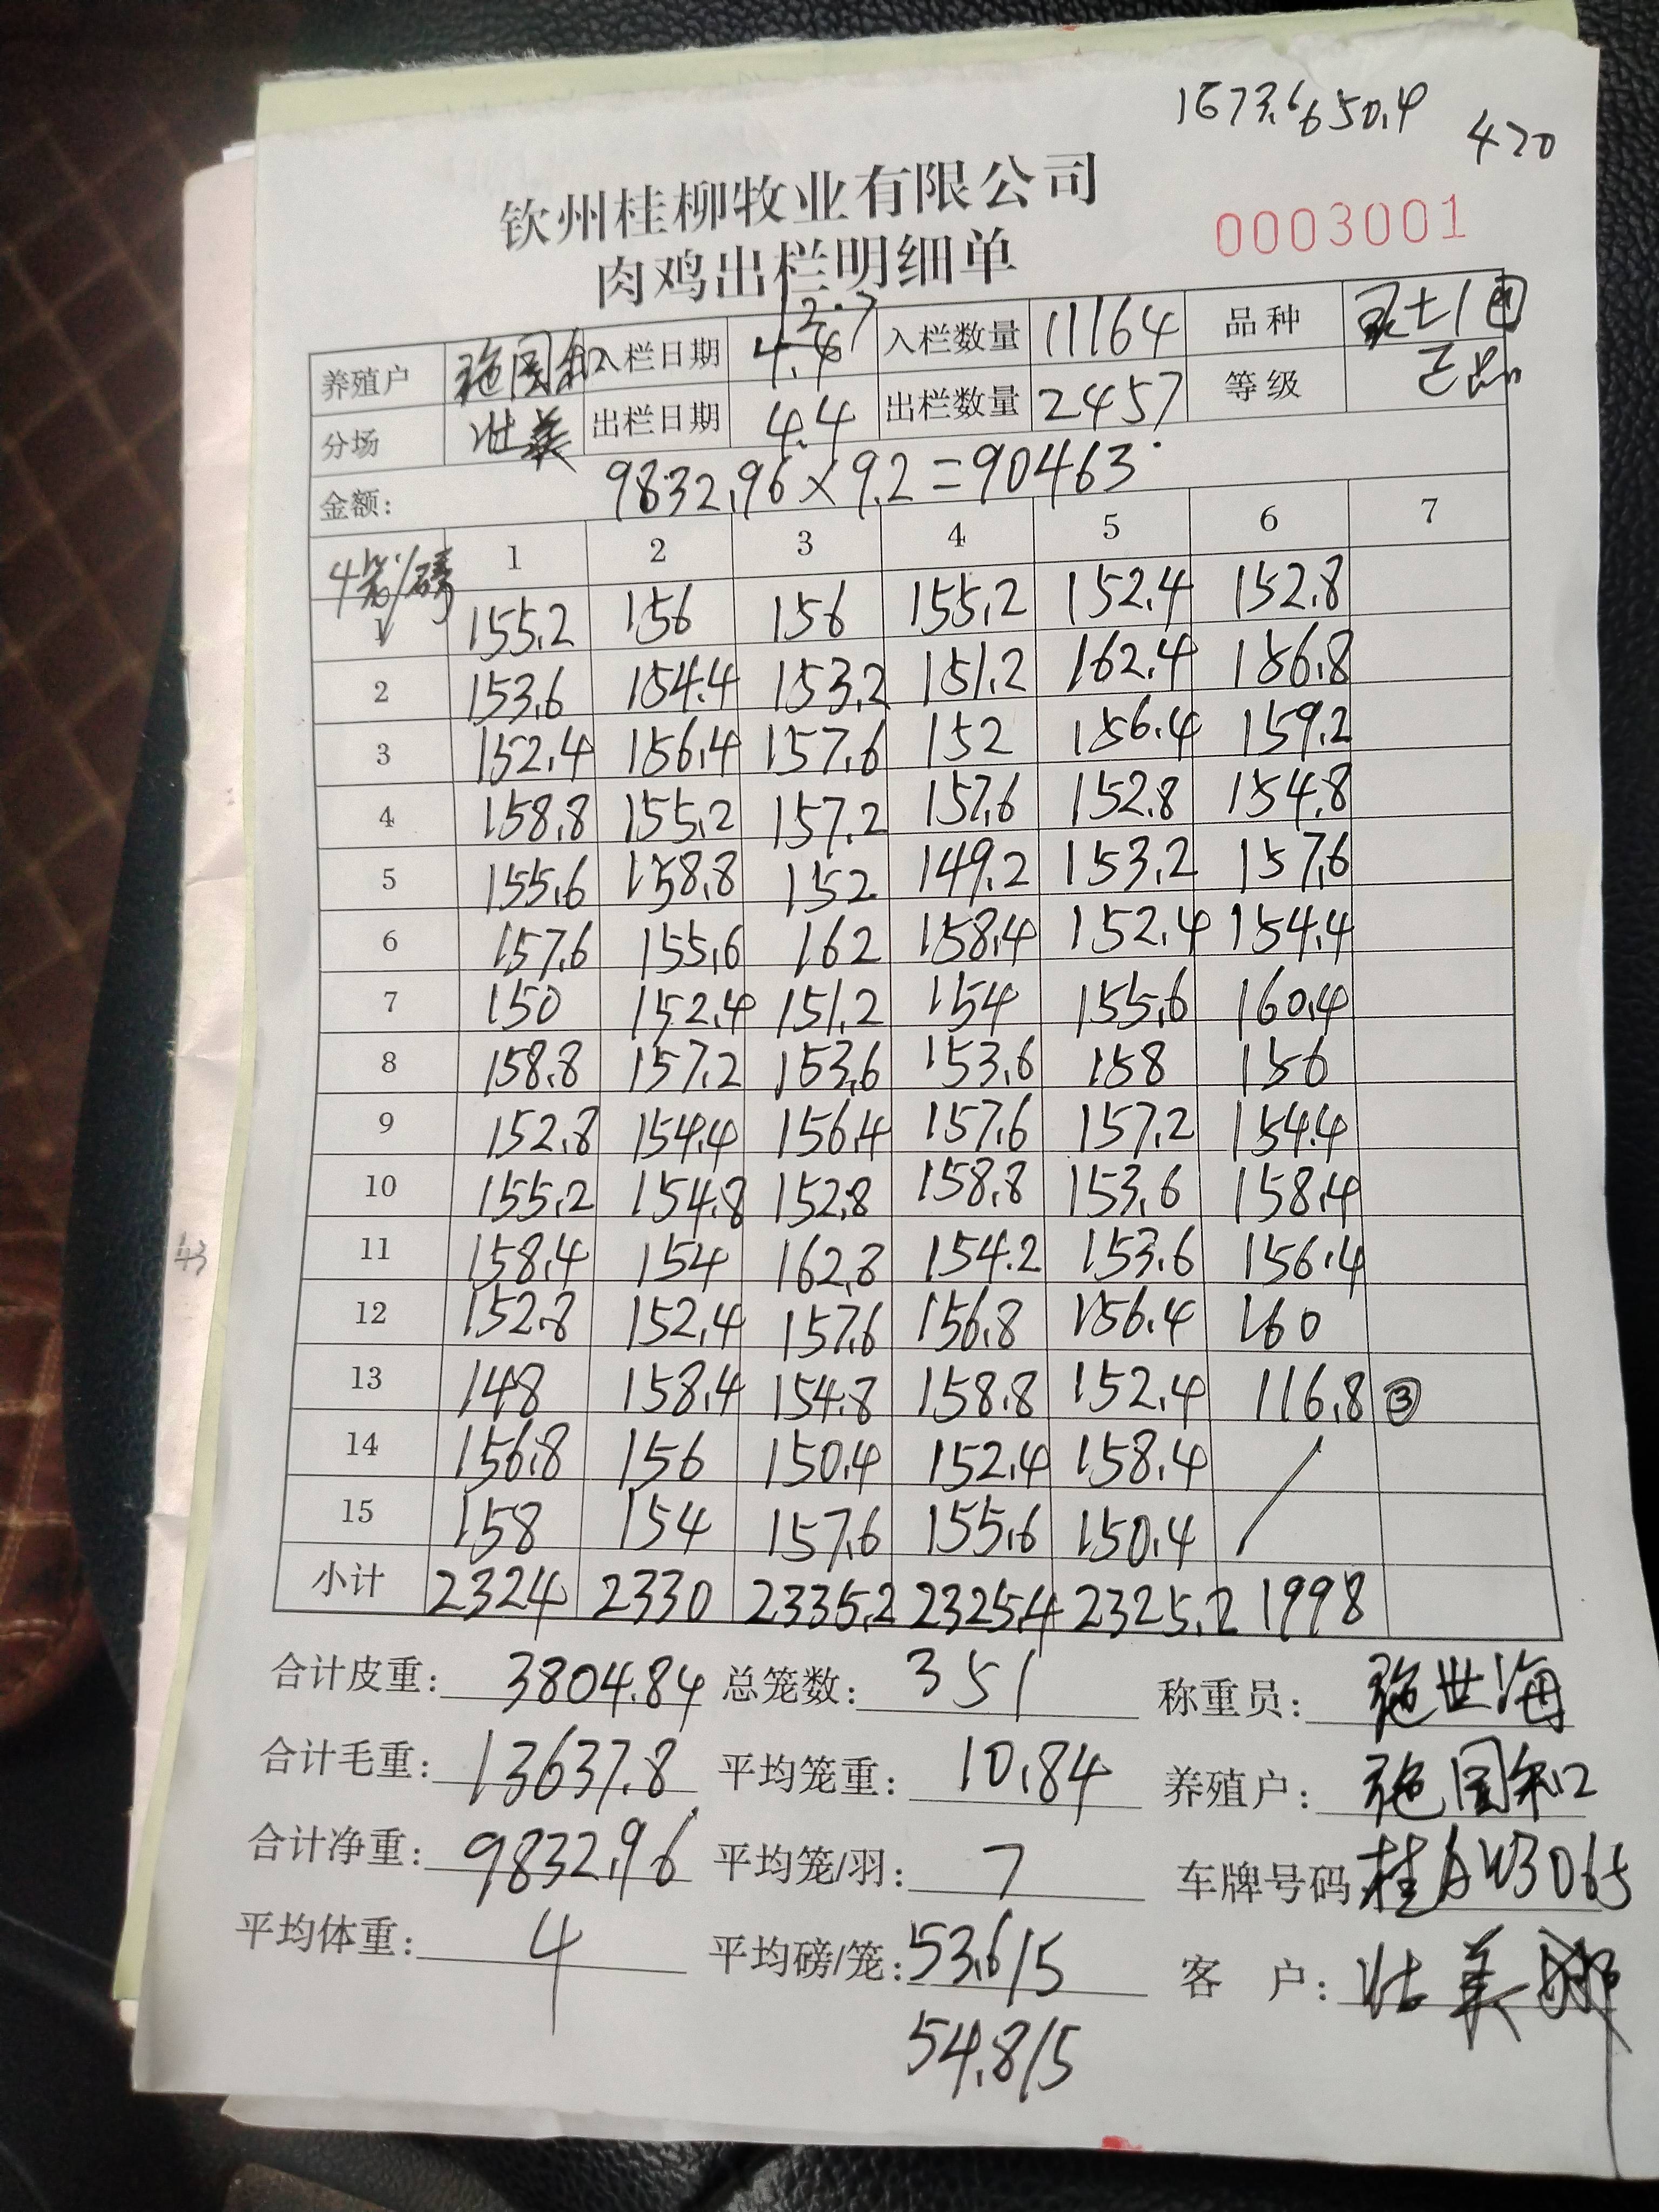 1673.6 650.4
420
钦州桂柳牧业有限公司
肉鸡出栏明细单
0003001
养殖户 施国和 入栏日期 12.7 入栏数量 11164 品种
分场 壮美 出栏日期 4.4 出栏数量 2457 等级 正品
金额: 9832.96×9.2=90463.
4笼/磅 1 2 3 4 5 6 7
1 155.2 156 156 155.2 152.4 152.8
2 153.6 154.4 153.2 151.2 162.4 156.8
3 152.4 156.4 157.6 152 156.4 159.2
4 158.8 155.2 157.2 157.6 152.8 154.8
5 155.6 158.8 152 149.2 153.2 157.6
6 157.6 155.6 162 158.4 152.4 154.4
7 150 152.4 151.2 154 155.6 160.4
8 158.8 157.2 153.6 153.6 158 156
9 152.8 154.4 156.4 157.6 157.2 154.4
10 155.2 154.8 152.8 158.8 153.6 158.4
11 158.4 154 162.8 154.2 153.6 156.4
12 152.8 152.4 157.6 156.8 156.4 160
13 148 158.4 154.8 158.8 152.4 116.8 ③
14 156.8 156 150.4 152.4 158.4
15 158 154 157.6 155.6 150.4
小计 2324 2330 2335.2 2325.4 2325.2 1998
合计皮重: 3804.84 总笼数: 351 称重员: 施世海
合计毛重: 13637.8 平均笼重: 10.84 养殖户: 施国和
合计净重: 9832.96 平均笼/羽: 7 车牌号码
平均体重: 4 平均磅/笼: 53.6/5 客 户: 壮美
54.8/5
43